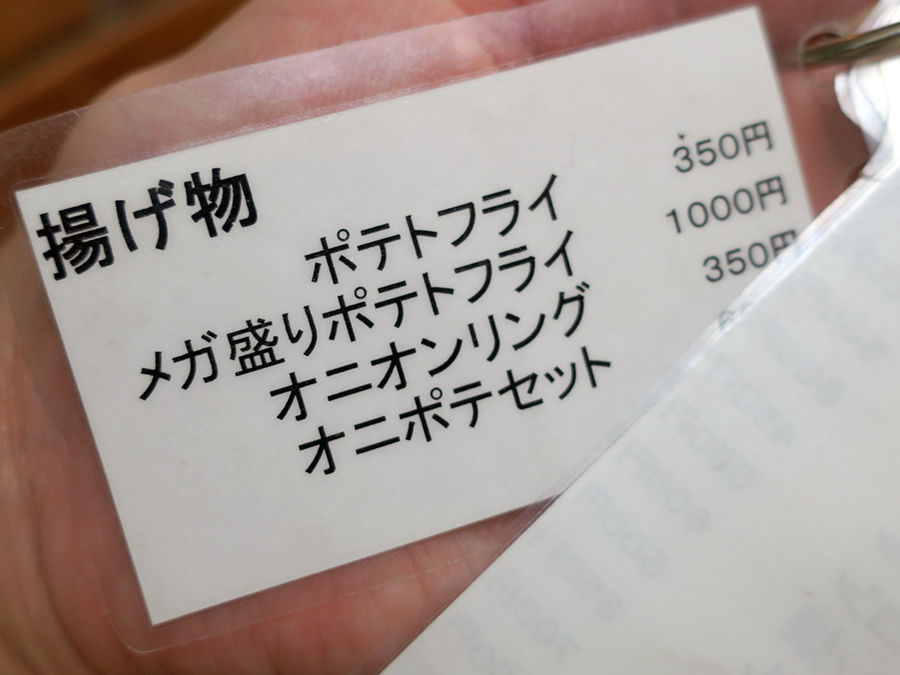 揚げ物
ポテトフライ 350円
メガ盛りポテトフライ 1000円
オニオンリング 350円
オニポテセット